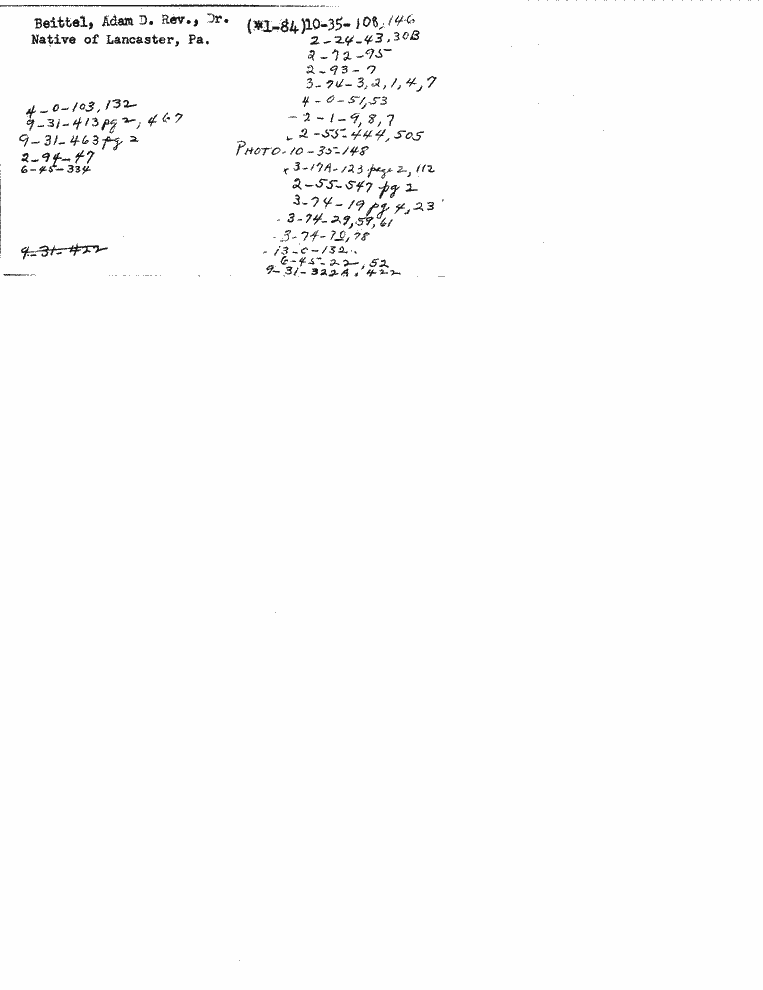 Beittel, Adam D. Rev., Dr. (*1-84)10-35-108, 146
Native of Lancaster, Pa. 2-24-43, 30B
2-72-95
2-93-7
3-74-3, 2, 1, 4, 7
4-0-51, 53
4-0-103, 132
-2-1-9, 8, 7
9-31-413 pg 2, 467
2-55-444, 505
9-31-463 pg 2
PHOTO-10-35-148
2-94-47
3-17A-123 page 2, 112
6-45-334
2-55-547 pg 2
3-74-19 pg 4, 23
-3-74-29, 59, 61
-3-74-70, 78
9-31-422
-13-0-132
6-45-22, 52
9-31-322A, 422